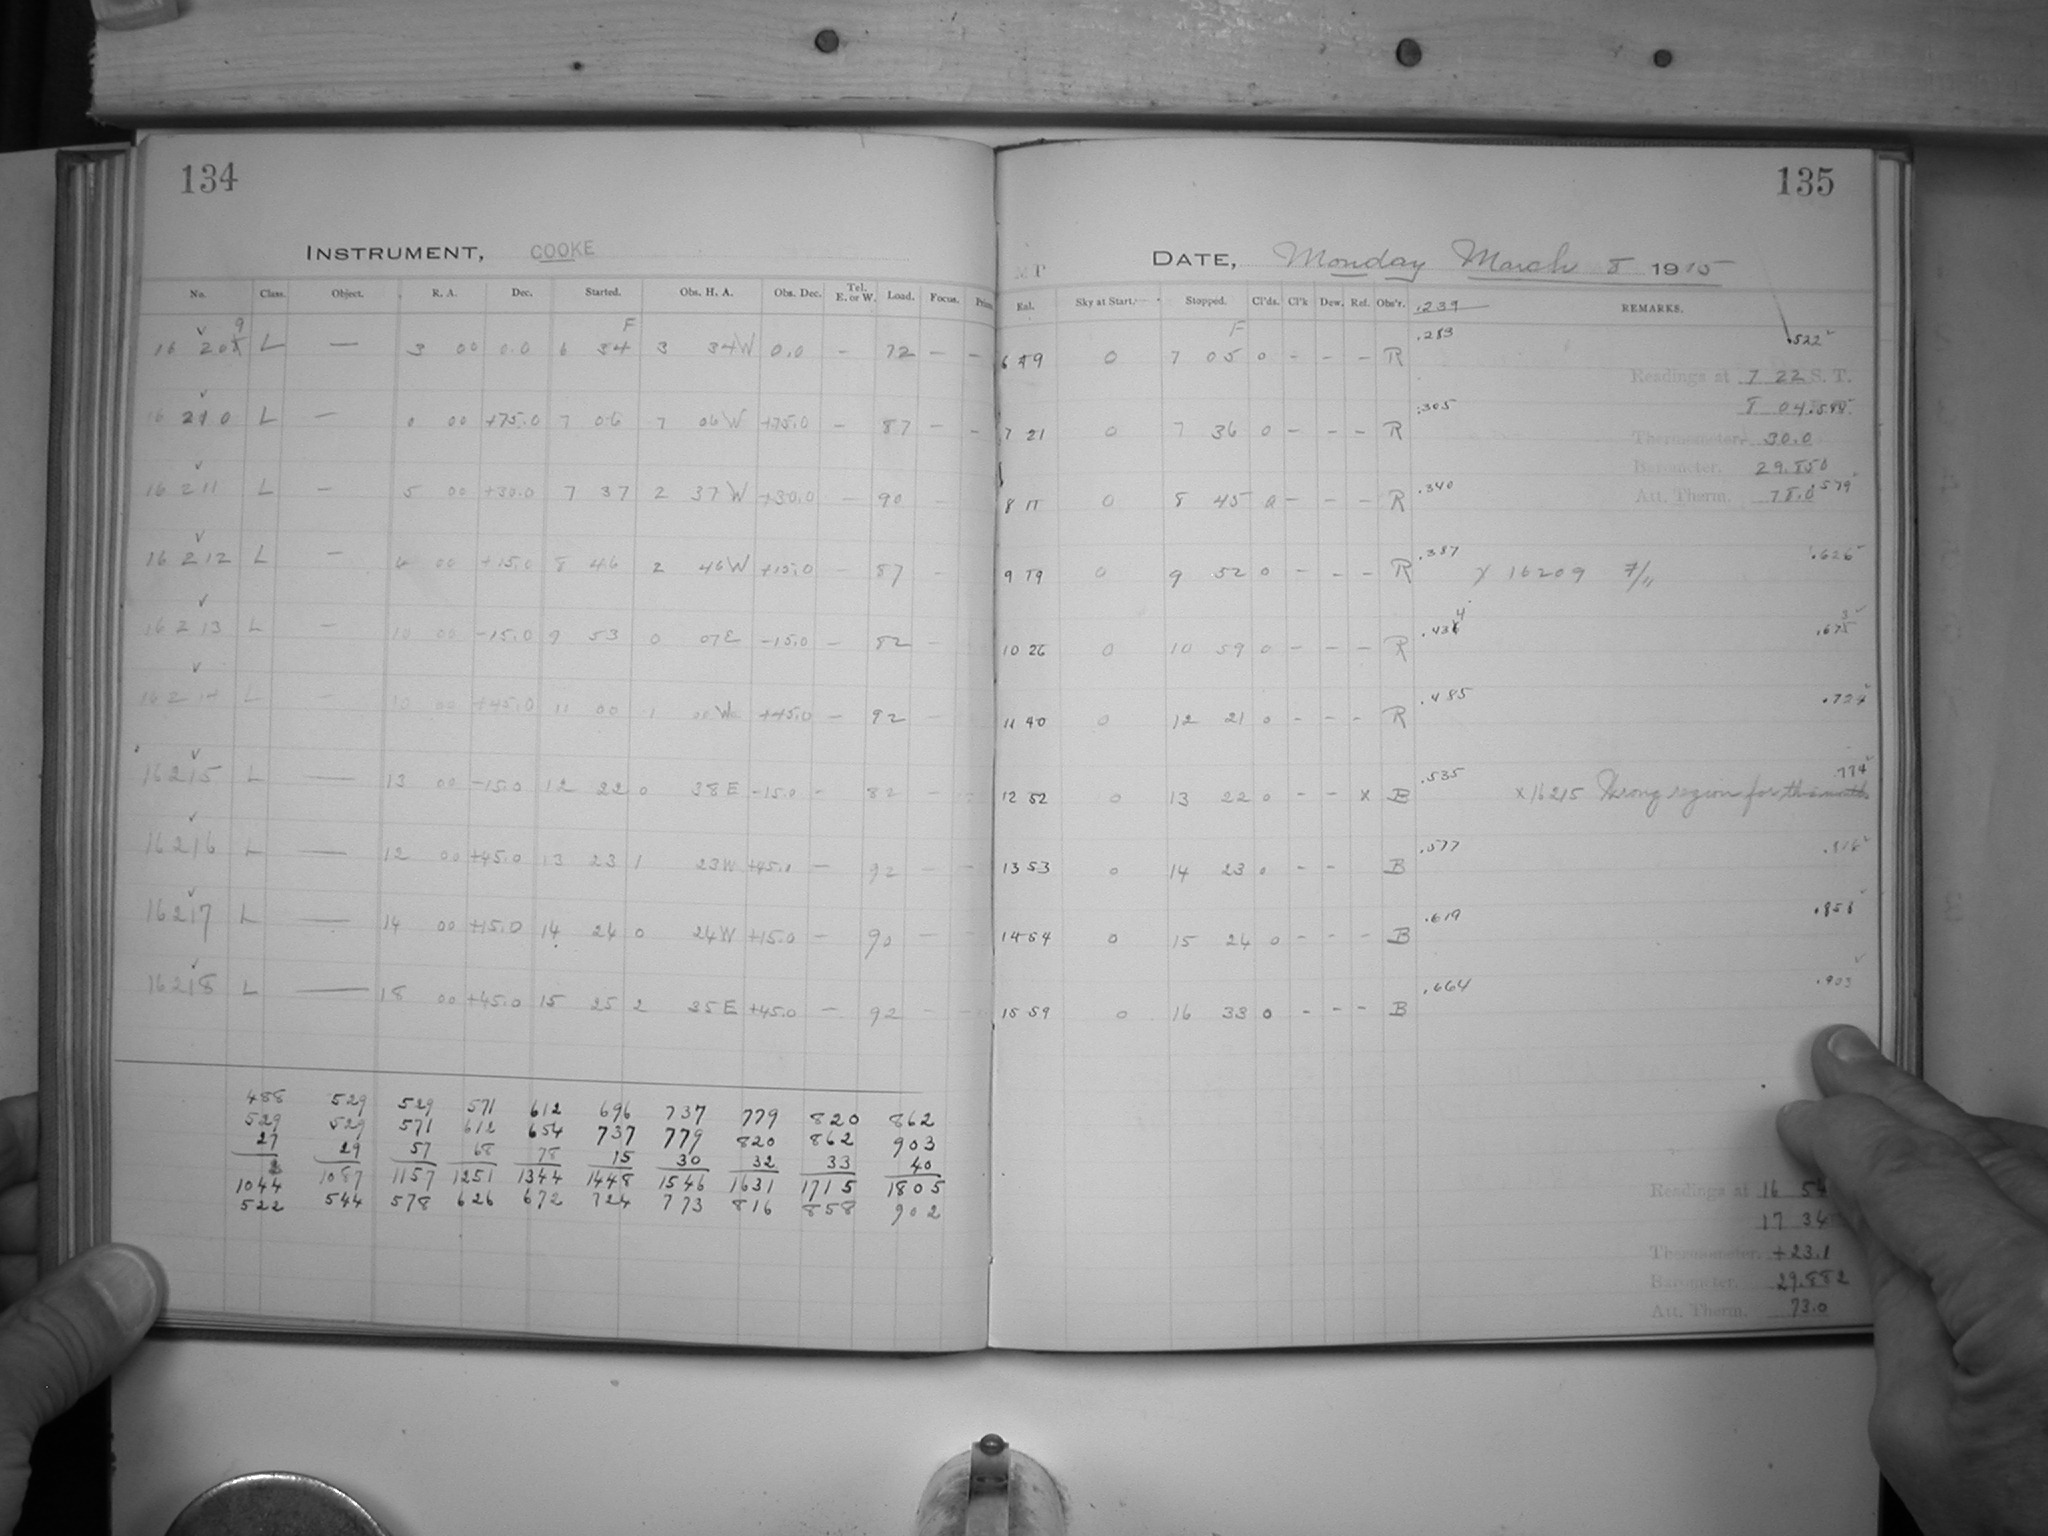 134
INSTRUMENT, COOKE
No. Class. Object. R. A. Dec. Started. Obs. H. A. Obs. Dec. Tel. E. or W. Load. Focus.
9 F
16 208 L — 3 00 0.0 6 34 3 34W 0.0 — 72 — —
16 210 L — 0 00 +75.0 7 06 7 06W +75.0 — 87 — —
16 211 L — 5 00 +30.0 7 37 2 37W +30.0 — 90 —
16 212 L — 6 00 +15.0 8 46 2 46W +15.0 — 87 —
16 213 L — 10 00 -15.0 9 53 0 07E -15.0 — 82 —
16 214 L — 10 00 +45.0 11 00 1 00W +45.0 — 92 —
16215 L — 13 00 -15.0 12 22 0 38E -15.0 — 82 —
16216 L — 12 00 +45.0 13 23 1 23W +45.0 — 92 — —
16217 L — 14 00 +15.0 14 24 0 24W +15.0 — 90 — —
16218 L — 18 00 +45.0 15 25 2 35E +45.0 — 92 — —
488 529 529 571 612 696 737 779 820 862
529 529 571 612 654 737 779 820 862 903
27 29 57 68 78 15 30 32 33 40
1044 1087 1157 1251 1344 1448 1546 1631 1715 1805
522 544 578 626 672 724 773 816 858 902
135
DATE, Monday March 8 1915
Sky at Start. Stopped. Cl'ds. Cl'k Dew. Ref. Obs'r. .239 REMARKS.
F .283 .522
6 49 0 7 05 0 - - - R
Readings at 7 22 S. T.
8 04
.305
7 21 0 7 36 0 - - - R
Thermometer. 30.0
Barometer. 29.850
Att. Therm. 78.0 .579
.340
8 11 0 8 45 0 - - - R
.387 .626
9 19 0 9 52 0 - - - R x 16209 7/11
.434 .673
10 26 0 10 59 0 - - - R
.485 .724
11 40 0 12 21 0 - - - R
.535 .774
12 52 0 13 22 0 - - x B x 16215 Wrong region for this month
.577 .816
13 53 0 14 23 0 - - B
.619 .858
14 54 0 15 24 0 - - - B
.664 .903
15 59 0 16 33 0 - - - B
Readings at 16 54
17 34
Thermometer. +23.1
Barometer. 29.882
Att. Therm. 73.0